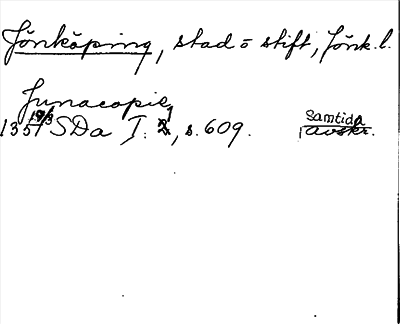 Jönköping, stad o stift, Jönk.l.
Junacopie
1351 19/3 SDa I: 1, s. 609. Samtida avskr.